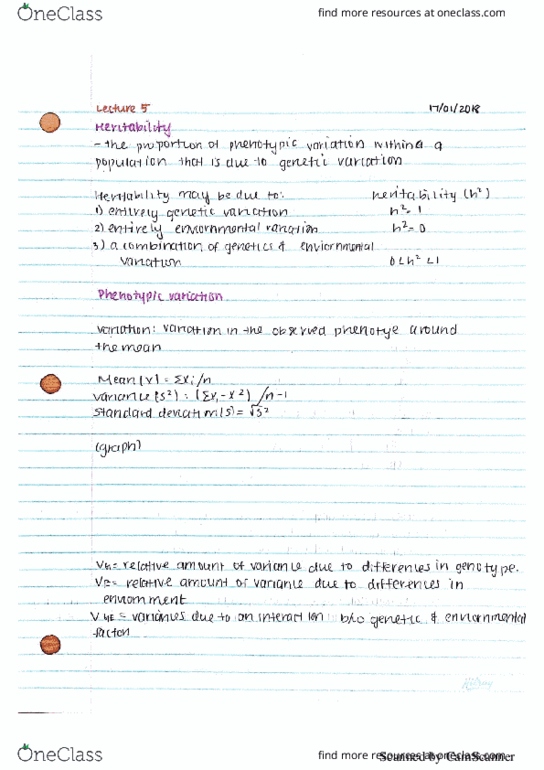 OneClass find more resources at oneclass.com
Lecture 5 17/01/2018
Heritability
- the proportion of phenotypic variation within a
population that is due to genetic variation
Heritability may be due to: heritability (h²)
1) entirely genetic variation h²=1
2) entirely enviornmental variation h²=0
3) a combination of genetics & enviornmental
variation 0<h²<1
Phenotypic variation
variation: variation in the observed phenotye around
the mean
Mean (x) = Σxi/n
variance (s²) = (Σxi-x²)/n-1
standard deviation (s) = √s²
(graph)
VG = relative amount of variance due to differences in genotype.
VE = relative amount of variance due to differences in
enviornment
VGE = variances due to an interaction b/c genetic & enviornmental
factor
OneClass find more resources at oneclass.com
Scanned by CamScanner